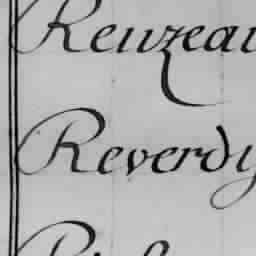 Reuzeau
Reverdy